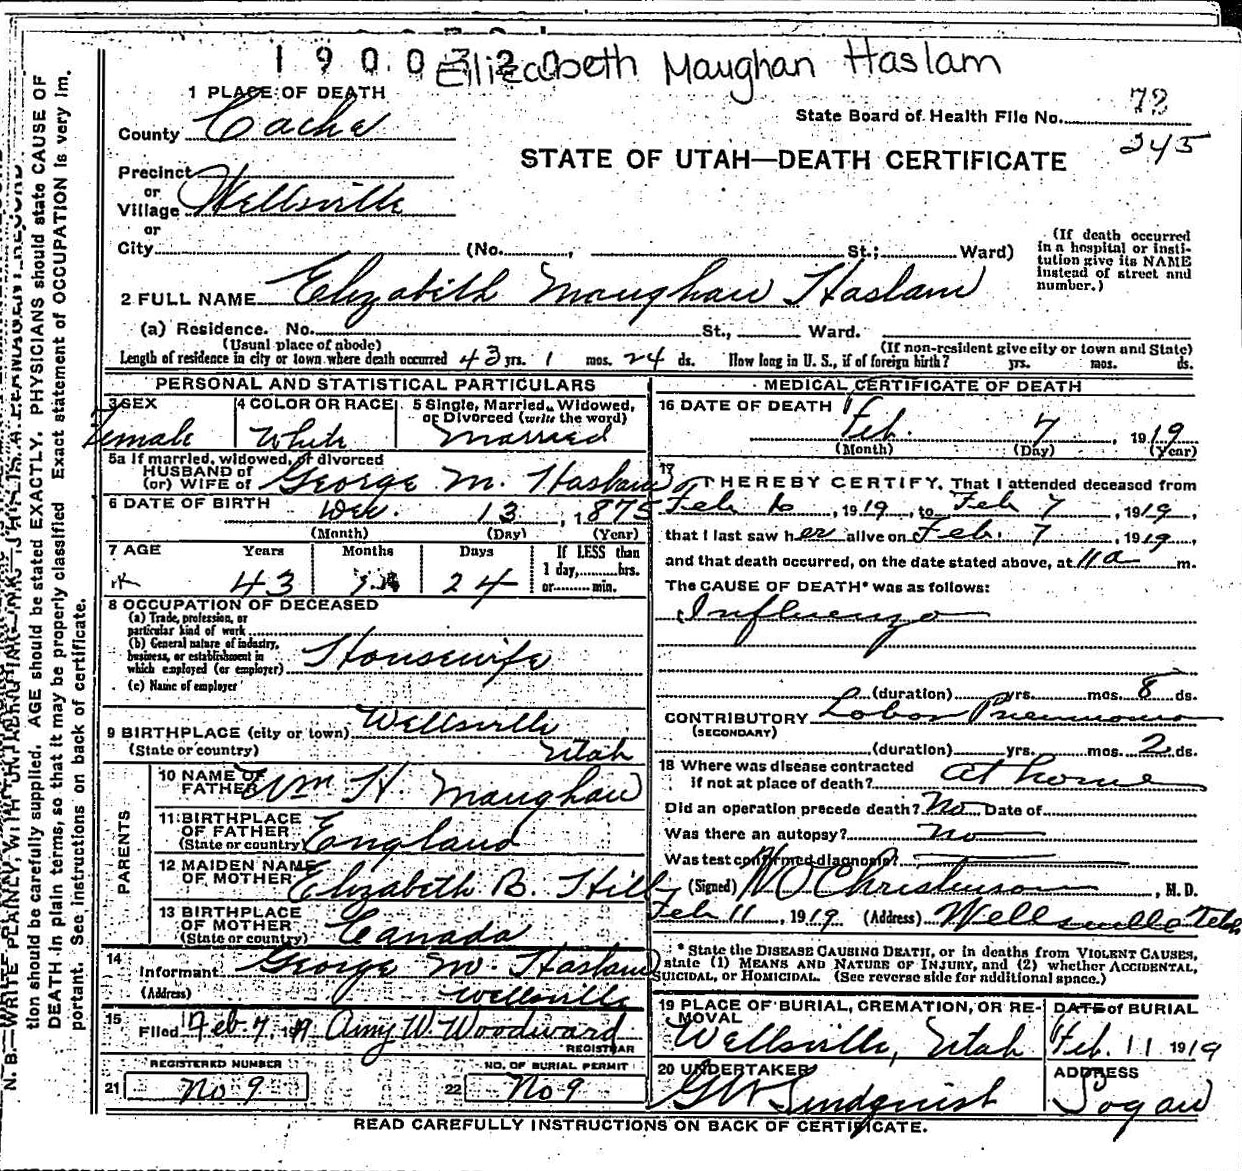 1 9 0 0 3 2 0
Elizabeth Maughan Haslam
1 PLACE OF DEATH
County Cache
State Board of Health File No. 72
245
STATE OF UTAH—DEATH CERTIFICATE
Precinct
or
Village Wellsville
or
City (No. , St.; Ward)
(If death occurred
in a hospital or insti-
tution give its NAME
instead of street and
number.)
2 FULL NAME Elizabeth Maughan Haslam
(a) Residence. No. St., Ward.
(Usual place of abode) (If non-resident give city or town and State)
Length of residence in city or town where death occurred 43 yrs. 1 mos. 24 ds. How long in U. S., if of foreign birth? yrs. mos. ds.
PERSONAL AND STATISTICAL PARTICULARS
3 SEX Female
4 COLOR OR RACE White
5 Single, Married, Widowed,
or Divorced (write the word)
Married
5a If married, widowed, or divorced
HUSBAND of
(or) WIFE of George M. Haslam
6 DATE OF BIRTH Dec. 13, 1875
(Month) (Day) (Year)
7 AGE Years Months Days If LESS than
1 day, hrs.
or min.
43 1 24
8 OCCUPATION OF DECEASED
(a) Trade, profession, or
particular kind of work
(b) General nature of industry,
business, or establishment in
which employed (or employer) Housewife
(c) Name of employer
9 BIRTHPLACE (city or town) Wellsville
(State or country) Utah
PARENTS
10 NAME OF
FATHER Wm H. Maughan
11 BIRTHPLACE
OF FATHER
(State or country) England
12 MAIDEN NAME
OF MOTHER Elizabeth B. Hill
13 BIRTHPLACE
OF MOTHER
(State or country) Canada
14
Informant George M. Haslam
(Address) Wellsville
15
Filed Feb. 7, 1919 Amy W. Woodward
REGISTRAR
REGISTERED NUMBER
21 No 9
NO. OF BURIAL PERMIT
22 No 9
MEDICAL CERTIFICATE OF DEATH
16 DATE OF DEATH
Feb. 7, 1919
(Month) (Day) (Year)
17
I HEREBY CERTIFY, That I attended deceased from
Feb 6, 1919, to Feb 7, 1919,
that I last saw her alive on Feb. 7, 1919,
and that death occurred, on the date stated above, at 11 a m.
The CAUSE OF DEATH* was as follows:
Influenza
(duration) yrs. mos. 8 ds.
CONTRIBUTORY Lobar Pneumonia
(SECONDARY)
(duration) yrs. mos. 2 ds.
18 Where was disease contracted
if not at place of death? at home
Did an operation precede death? No Date of
Was there an autopsy? no
Was test confirmed diagnosis?
(Signed) Christenson, M.D.
Feb 11, 1919 (Address) Wellsville Utah
* State the DISEASE CAUSING DEATH, or in deaths from VIOLENT CAUSES,
state (1) MEANS AND NATURE OF INJURY, and (2) whether ACCIDENTAL,
SUICIDAL, or HOMICIDAL. (See reverse side for additional space.)
19 PLACE OF BURIAL, CREMATION, OR RE-
MOVAL
Wellsville, Utah
DATE of BURIAL
Feb. 11 1919
20 UNDERTAKER
G W Lindquist
ADDRESS
Logan
READ CAREFULLY INSTRUCTIONS ON BACK OF CERTIFICATE.
N. B.—WRITE PLAINLY, WITH UNFADING INK; THIS IS A PERMANENT RECORD
tion should be carefully supplied. AGE should be stated EXACTLY. PHYSICIANS should state CAUSE OF
DEATH in plain terms, so that it may be properly classified Exact statement of OCCUPATION is very im.
portant. See instructions on back of certificate.